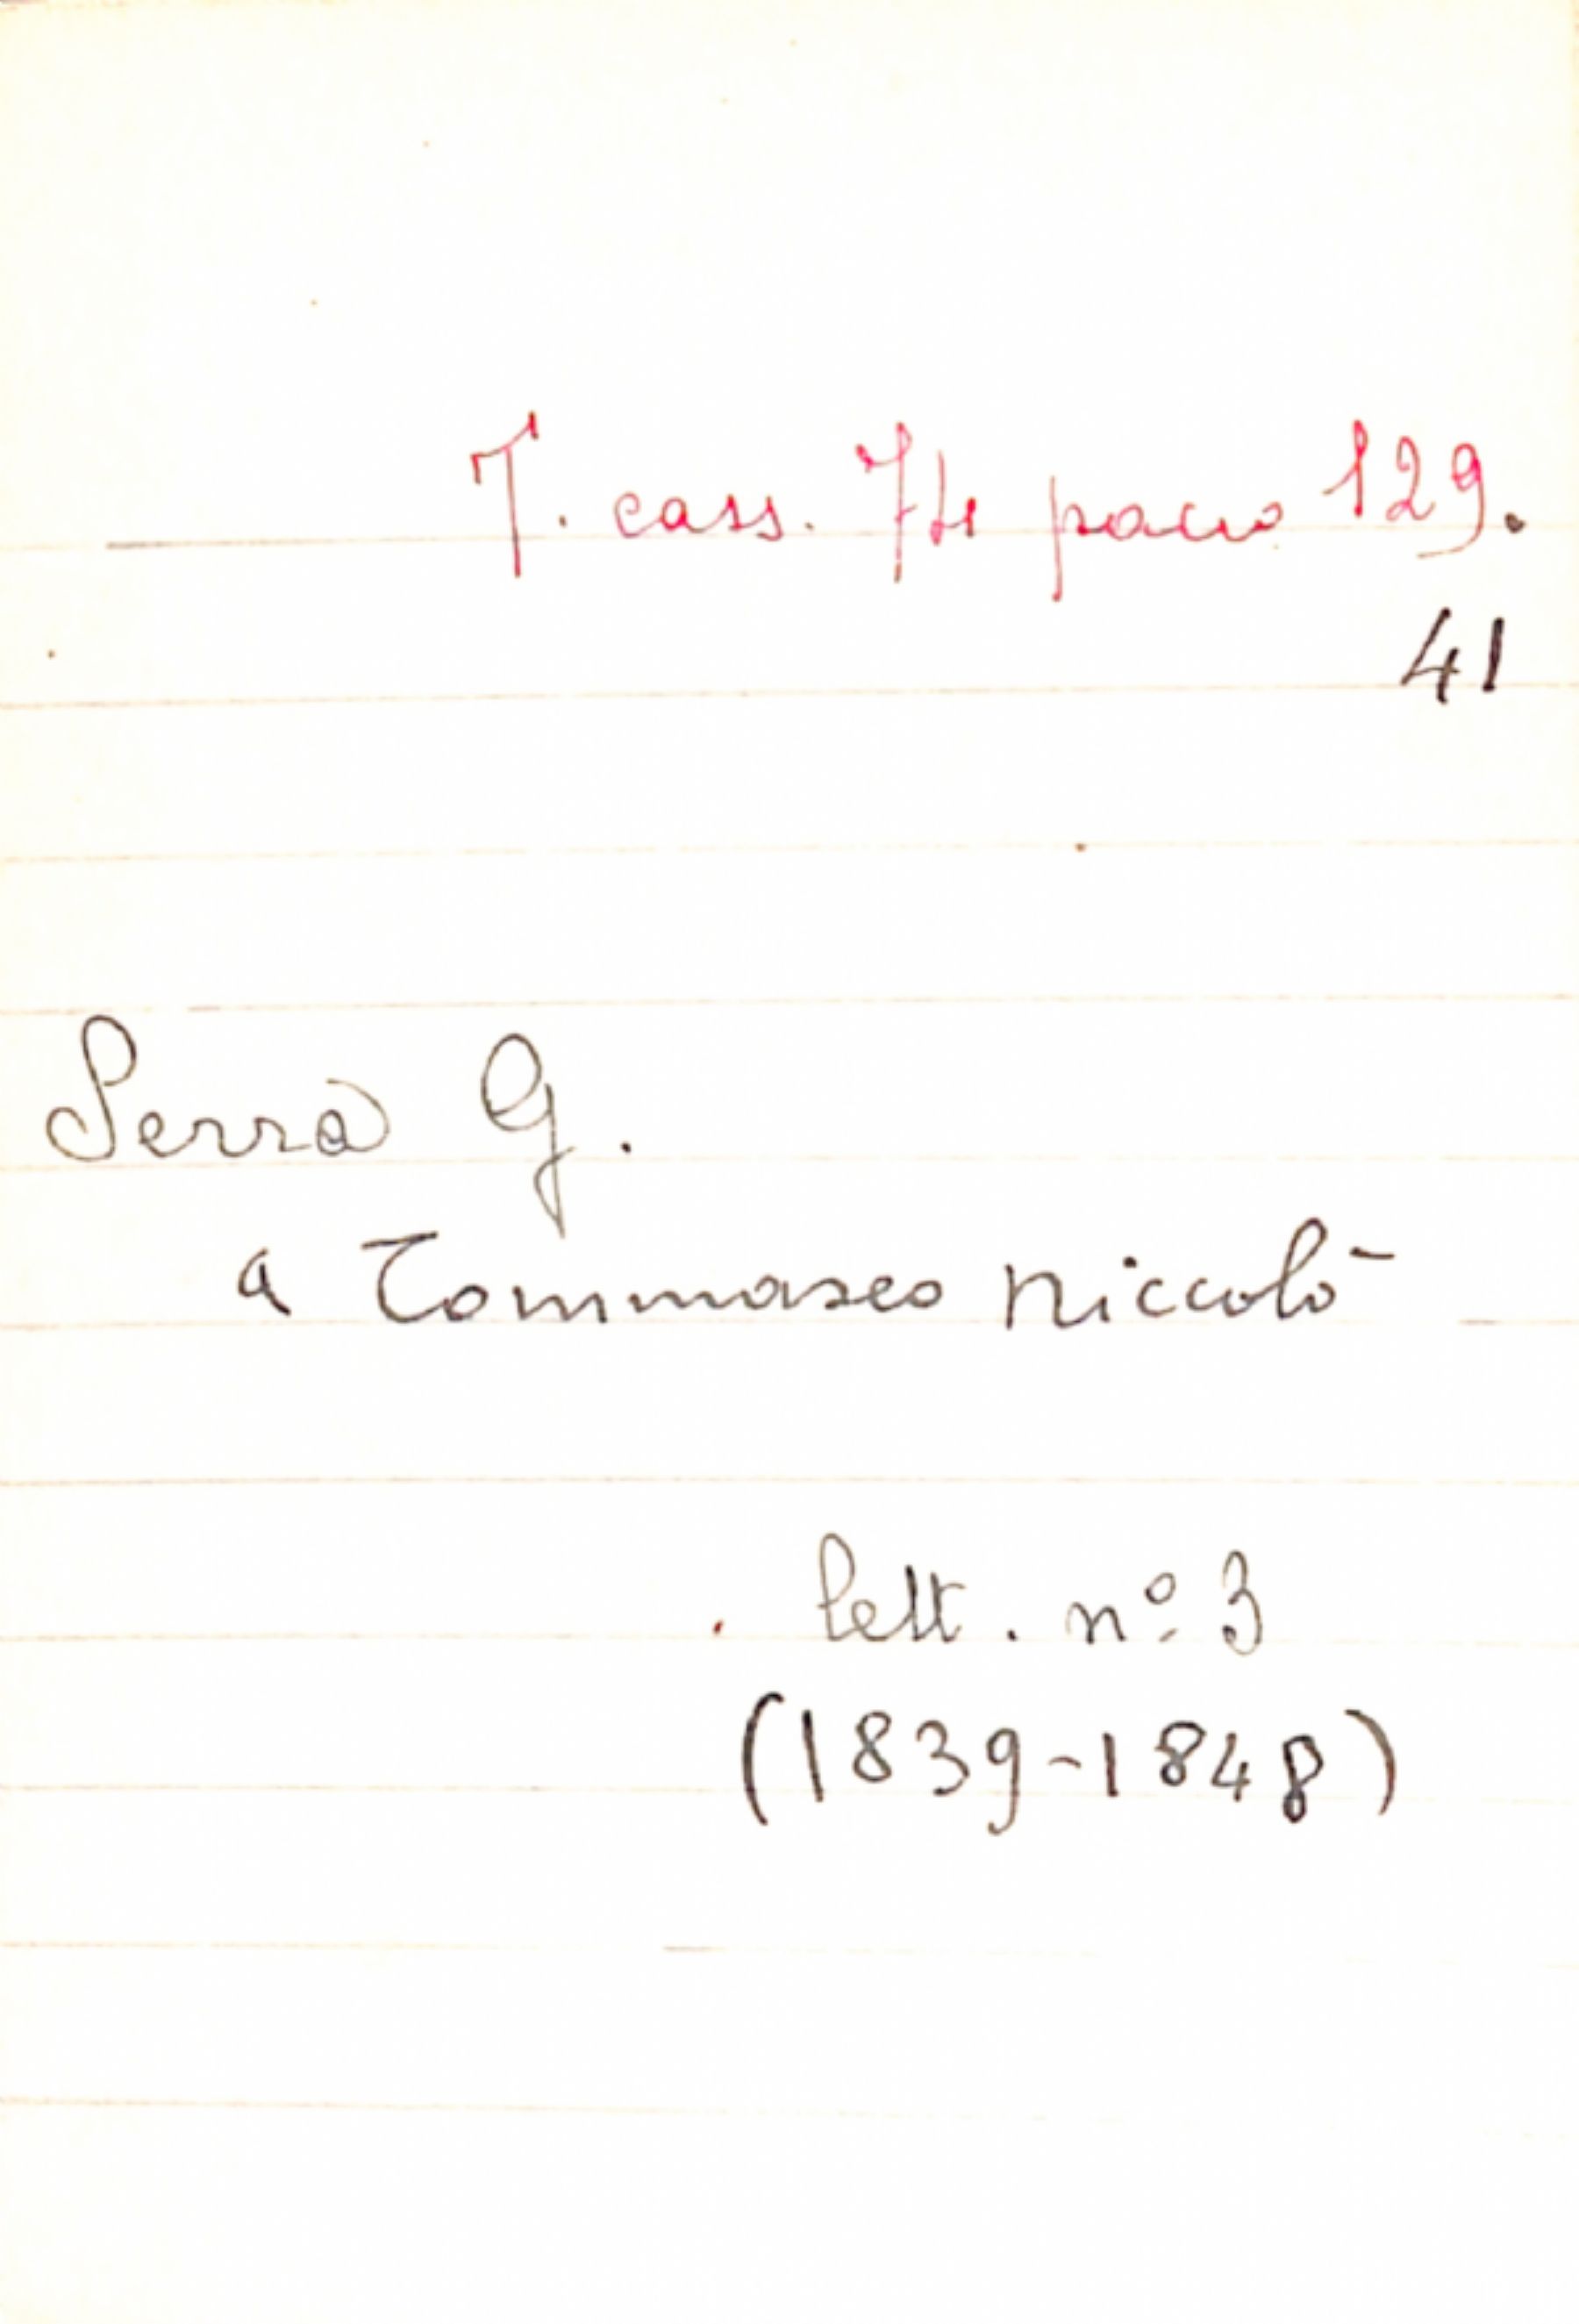 T. cass. 74 pacco 129.
41
Serra G.
a Tommaseo Niccolò
lett. nº 3
(1839-1848)